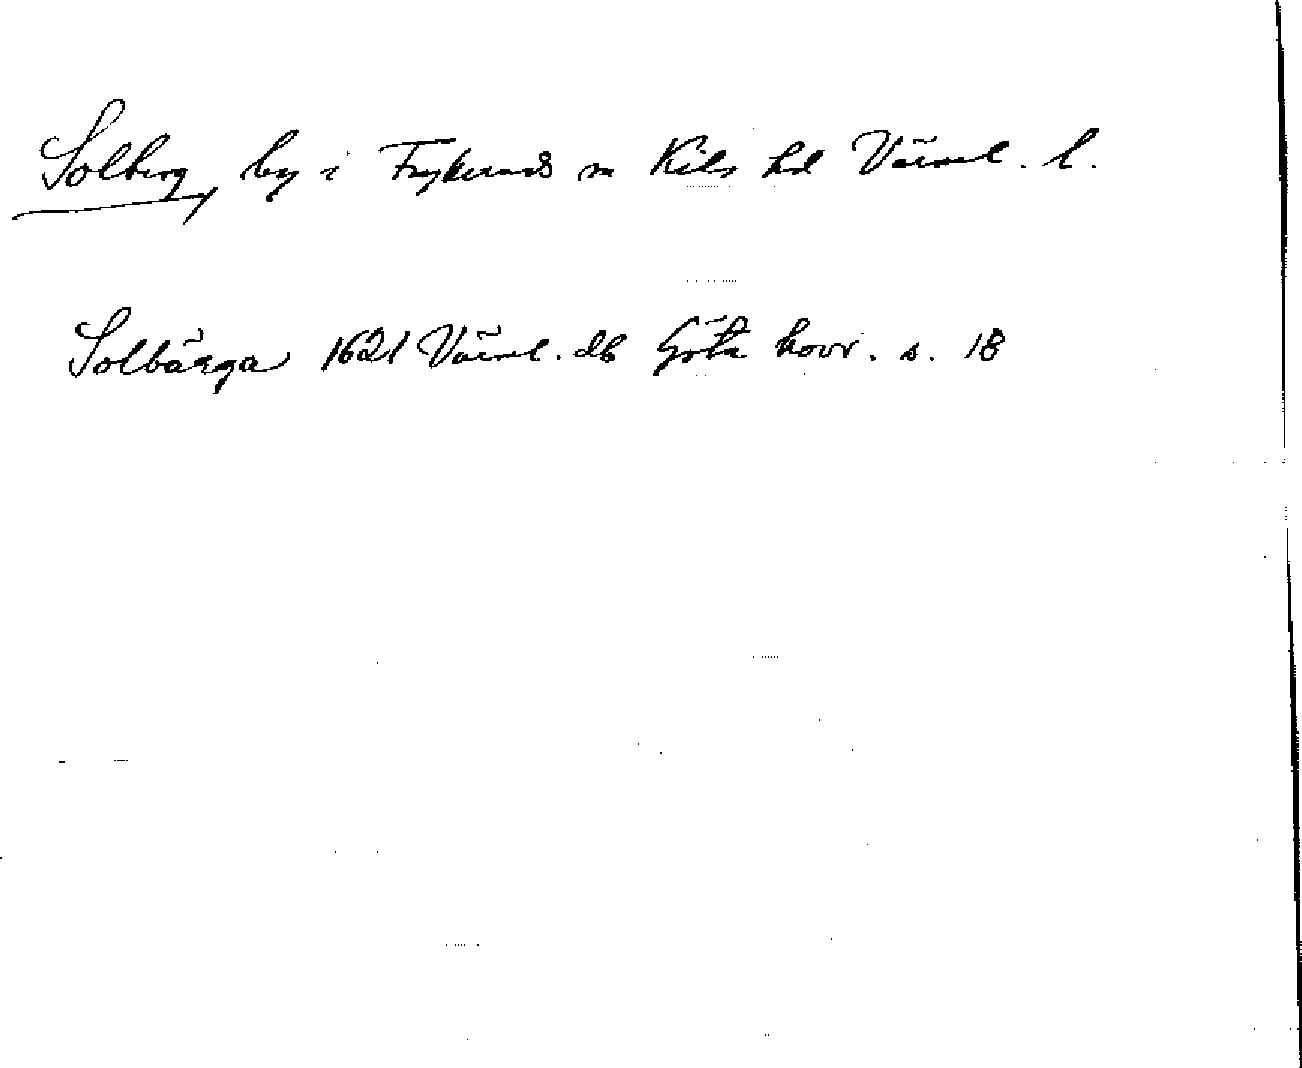 Solberg, by i Frykerud sn Kils hd Värml. l.
Solbärga 1621 Värml. db Göta hovr. s. 18